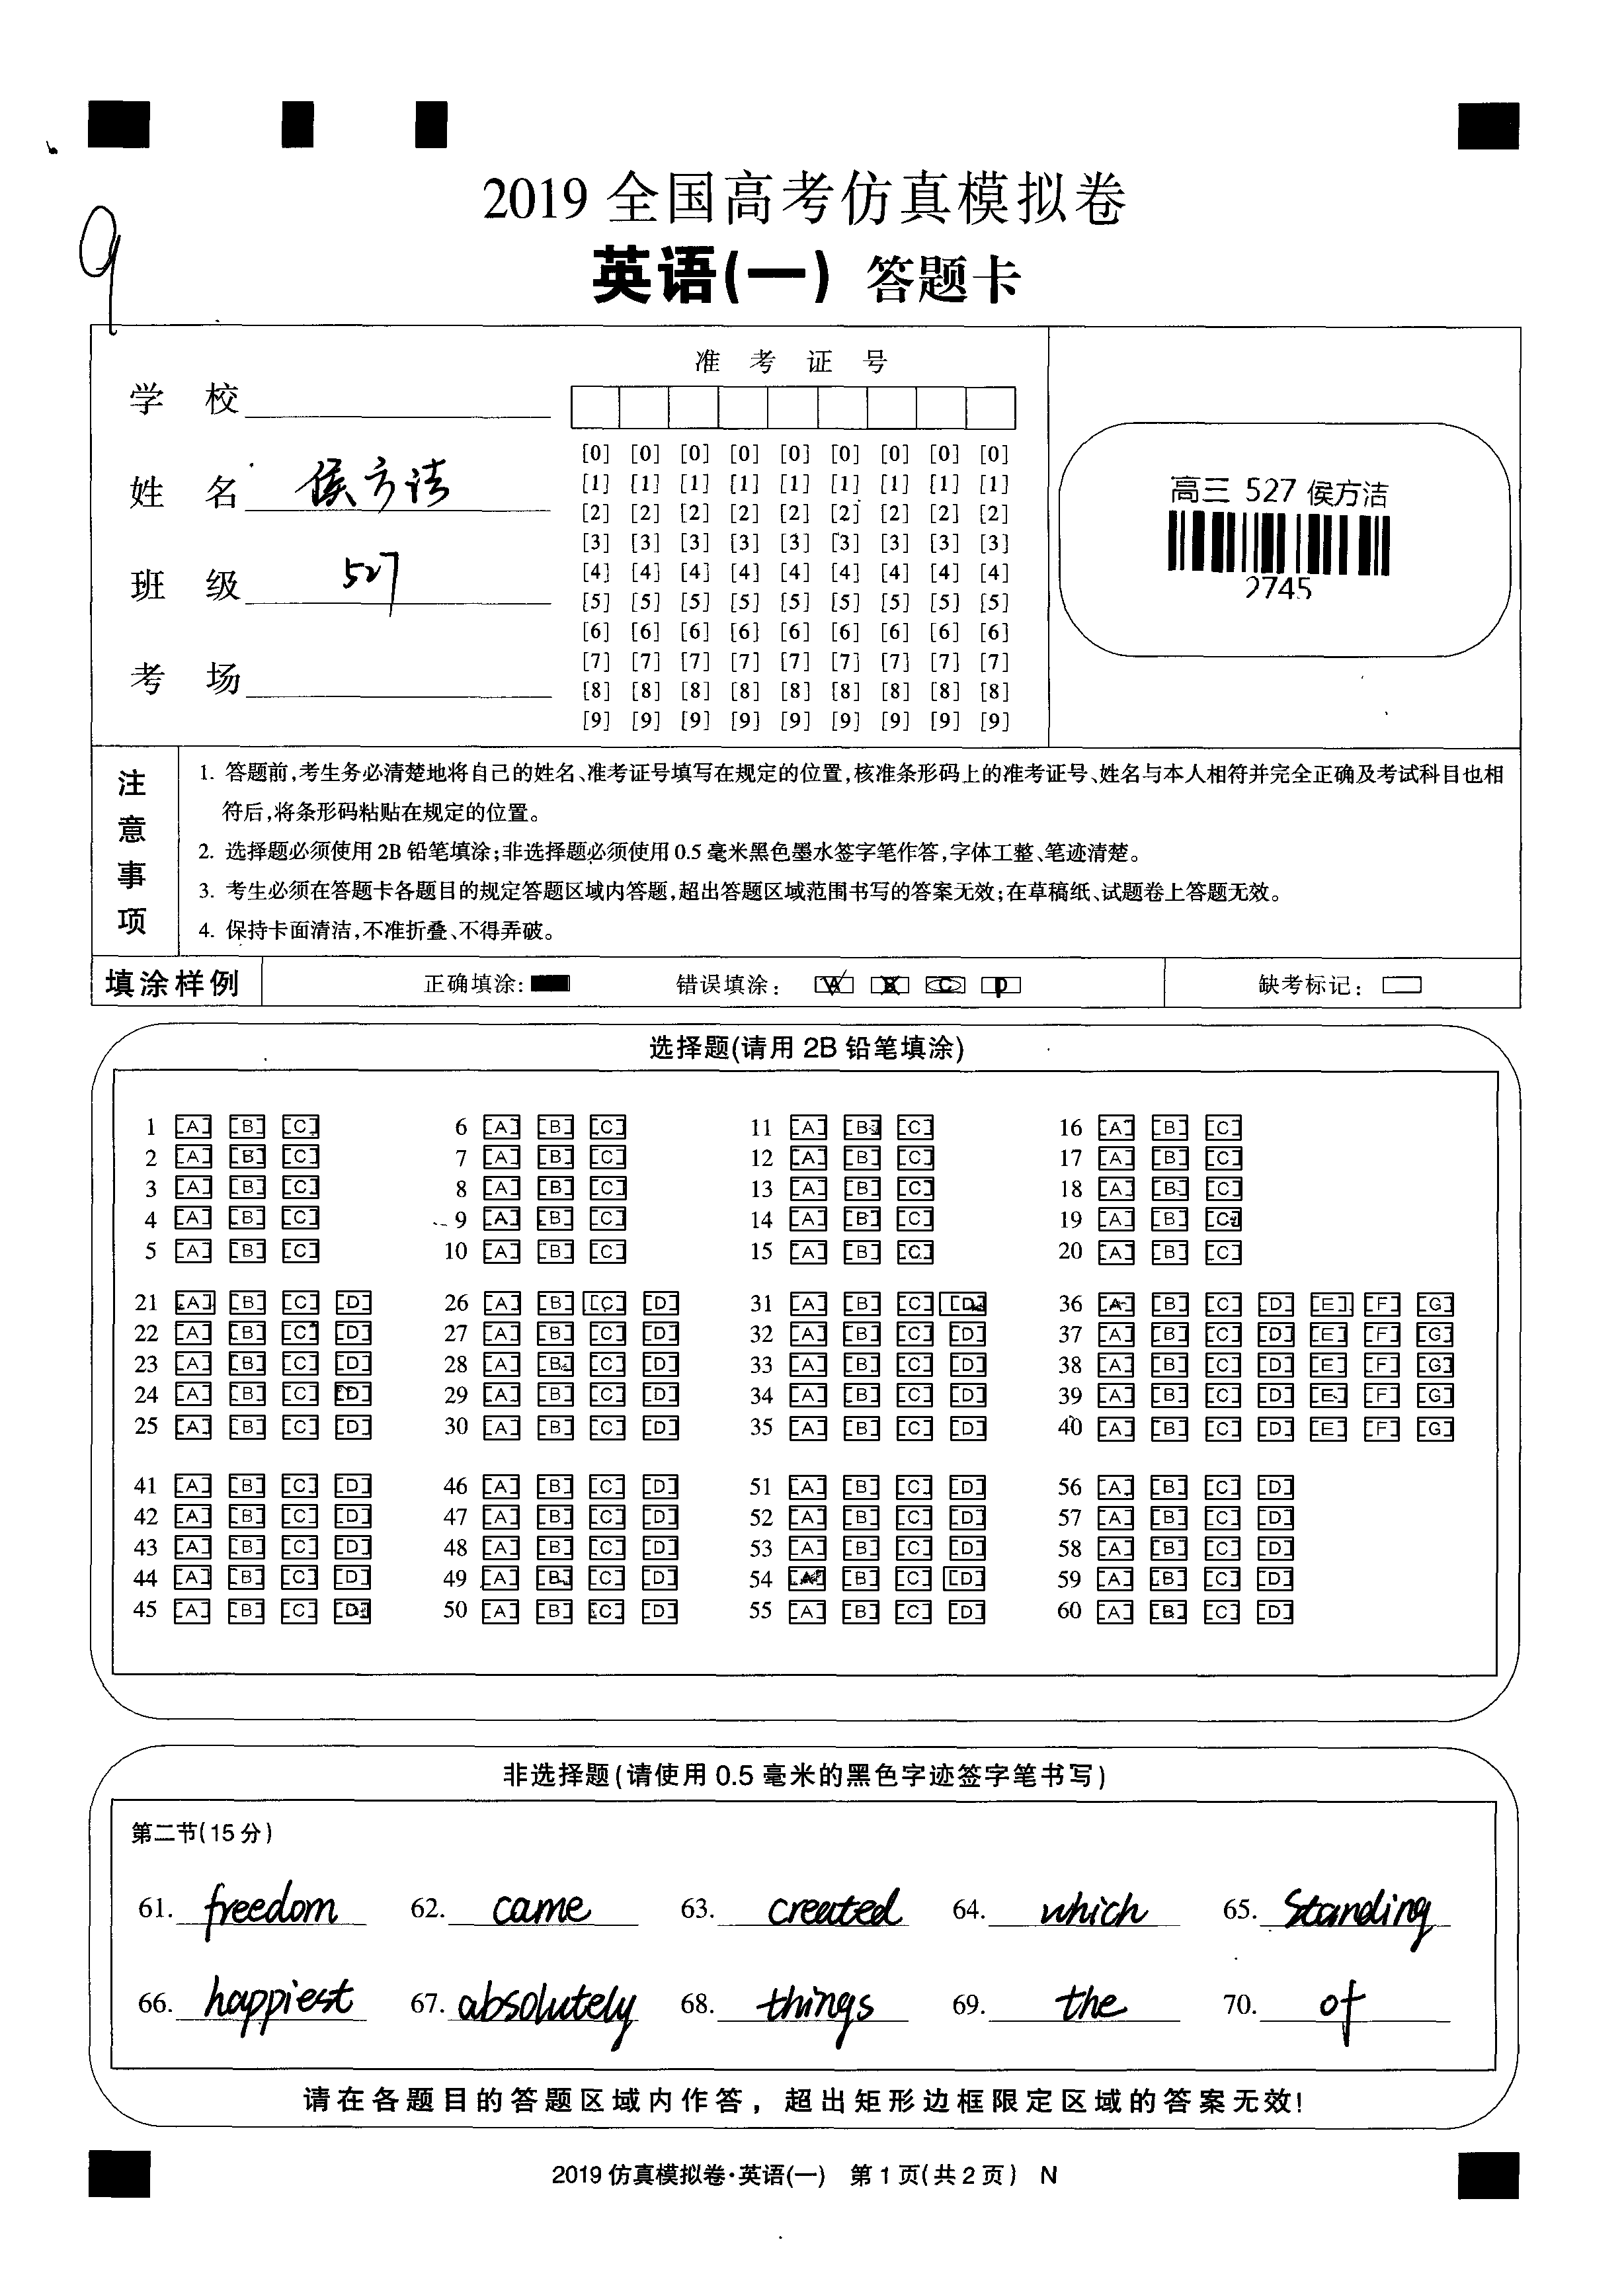 9
2019 全国高考仿真模拟卷
英语(一) 答题卡
准 考 证 号
学 校
姓 名 侯方洁
班 级 527
考 场
[0] [0] [0] [0] [0] [0] [0] [0] [0]
[1] [1] [1] [1] [1] [1] [1] [1] [1]
[2] [2] [2] [2] [2] [2] [2] [2] [2]
[3] [3] [3] [3] [3] [3] [3] [3] [3]
[4] [4] [4] [4] [4] [4] [4] [4] [4]
[5] [5] [5] [5] [5] [5] [5] [5] [5]
[6] [6] [6] [6] [6] [6] [6] [6] [6]
[7] [7] [7] [7] [7] [7] [7] [7] [7]
[8] [8] [8] [8] [8] [8] [8] [8] [8]
[9] [9] [9] [9] [9] [9] [9] [9] [9]
高三 527 侯方洁
2745
注意事项
1. 答题前,考生务必清楚地将自己的姓名、准考证号填写在规定的位置,核准条形码上的准考证号、姓名与本人相符并完全正确及考试科目也相
符后,将条形码粘贴在规定的位置。
2. 选择题必须使用 2B 铅笔填涂;非选择题必须使用 0.5 毫米黑色墨水签字笔作答,字体工整、笔迹清楚。
3. 考生必须在答题卡各题目的规定答题区域内答题,超出答题区域范围书写的答案无效;在草稿纸、试题卷上答题无效。
4. 保持卡面清洁,不准折叠、不得弄破。
填涂样例 正确填涂: 错误填涂: A B C D 缺考标记:
选择题(请用 2B 铅笔填涂)
1 [A] [B] [C] 6 [A] [B] [C] 11 [A] [B] [C] 16 [A] [B] [C]
2 [A] [B] [C] 7 [A] [B] [C] 12 [A] [B] [C] 17 [A] [B] [C]
3 [A] [B] [C] 8 [A] [B] [C] 13 [A] [B] [C] 18 [A] [B] [C]
4 [A] [B] [C] 9 [A] [B] [C] 14 [A] [B] [C] 19 [A] [B] [C]
5 [A] [B] [C] 10 [A] [B] [C] 15 [A] [B] [C] 20 [A] [B] [C]
21 [A] [B] [C] [D] 26 [A] [B] [C] [D] 31 [A] [B] [C] [D] 36 [A] [B] [C] [D] [E] [F] [G]
22 [A] [B] [C] [D] 27 [A] [B] [C] [D] 32 [A] [B] [C] [D] 37 [A] [B] [C] [D] [E] [F] [G]
23 [A] [B] [C] [D] 28 [A] [B] [C] [D] 33 [A] [B] [C] [D] 38 [A] [B] [C] [D] [E] [F] [G]
24 [A] [B] [C] [D] 29 [A] [B] [C] [D] 34 [A] [B] [C] [D] 39 [A] [B] [C] [D] [E] [F] [G]
25 [A] [B] [C] [D] 30 [A] [B] [C] [D] 35 [A] [B] [C] [D] 40 [A] [B] [C] [D] [E] [F] [G]
41 [A] [B] [C] [D] 46 [A] [B] [C] [D] 51 [A] [B] [C] [D] 56 [A] [B] [C] [D]
42 [A] [B] [C] [D] 47 [A] [B] [C] [D] 52 [A] [B] [C] [D] 57 [A] [B] [C] [D]
43 [A] [B] [C] [D] 48 [A] [B] [C] [D] 53 [A] [B] [C] [D] 58 [A] [B] [C] [D]
44 [A] [B] [C] [D] 49 [A] [B] [C] [D] 54 [A] [B] [C] [D] 59 [A] [B] [C] [D]
45 [A] [B] [C] [D] 50 [A] [B] [C] [D] 55 [A] [B] [C] [D] 60 [A] [B] [C] [D]
非选择题(请使用 0.5 毫米的黑色字迹签字笔书写)
第二节(15 分)
61. freedom 62. came 63. created 64. which 65. standing
66. happiest 67. absolutely 68. things 69. the 70. of
请在各题目的答题区域内作答，超出矩形边框限定区域的答案无效!
2019 仿真模拟卷·英语(一) 第 1 页(共 2 页) N